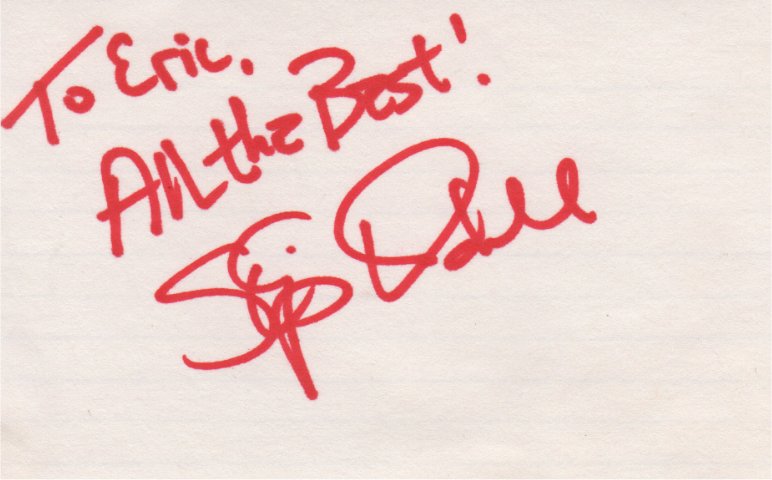 To Eric.
All the Best!
Skip